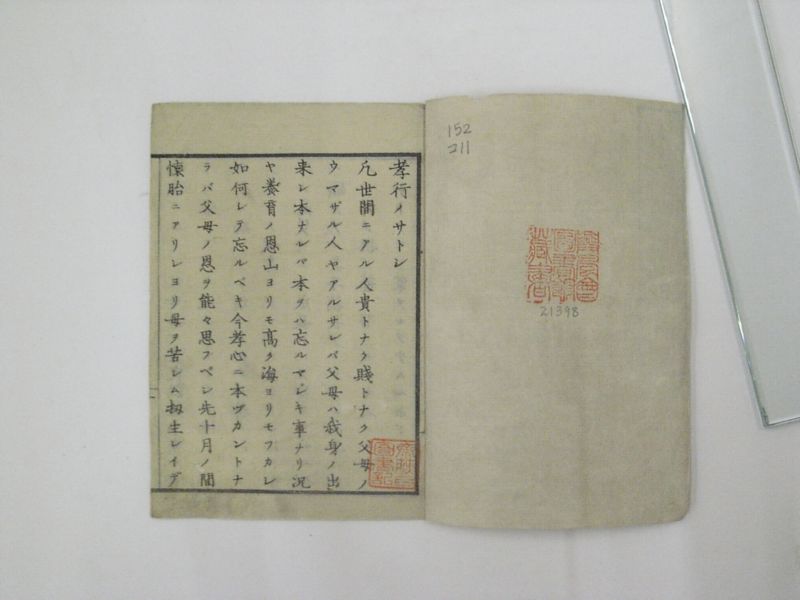 152
コ11
21398
孝行ノサトシ
凡世間ニアル人貴トナク賤トナク父母ノ
ウマザル人ヤアルサレバ父母ハ我身ノ出
来シ本ナレバ本ヲハ忘ルマジキ事ナリ況
ヤ養育ノ恩山ヨリモ高ク海ヨリモフカシ
如何シテ忘ルベキ今孝心ニ本ヅカントナ
ラバ父母ノ恩ヲ能々思フベシ先十月ノ間
懐胎ニアリシヨリ母ヲ苦シム扨生レイデ